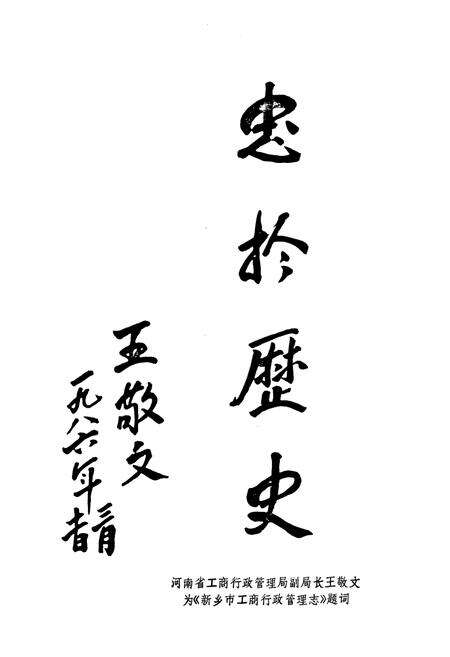 忠於歷史
王敬文
一九八六年
河南省工商行政管理局副局长王敬文
为《新乡市工商行政管理志》题词